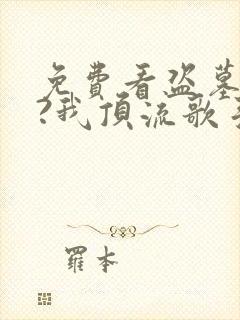 免费看盗墓
?我顶流歌手
羅本